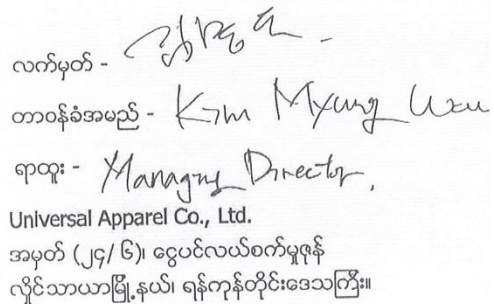 လက်မှတ် -
တာဝန်ခံအမည် - Kim Myung
ရာထူး - Managing Director,
Universal Apparel Co., Ltd.
အမှတ် (၂၄/ ၆)၊ ငွေပင်လယ်စက်မှုဇုန်
လှိုင်သာယာမြို့နယ်၊ ရန်ကုန်တိုင်းဒေသကြီး။